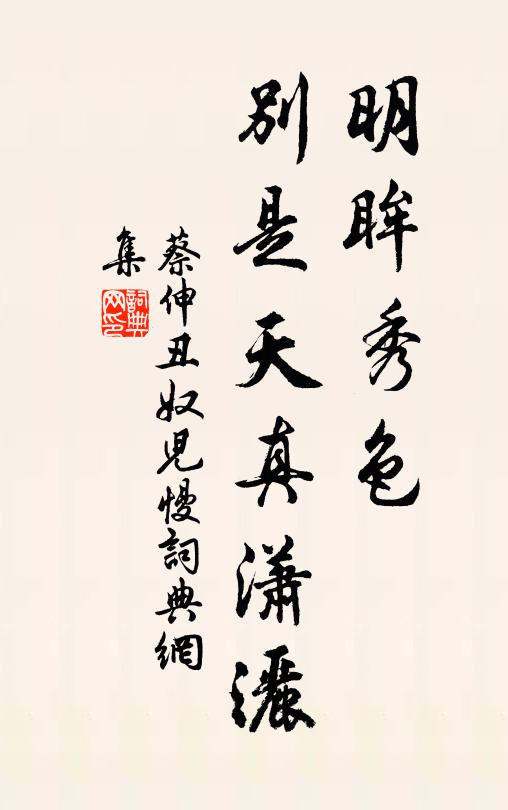 明眸秀色
別是天真瀟灑
蔡伸丑奴兒慢詞典網
集
詞典
网印